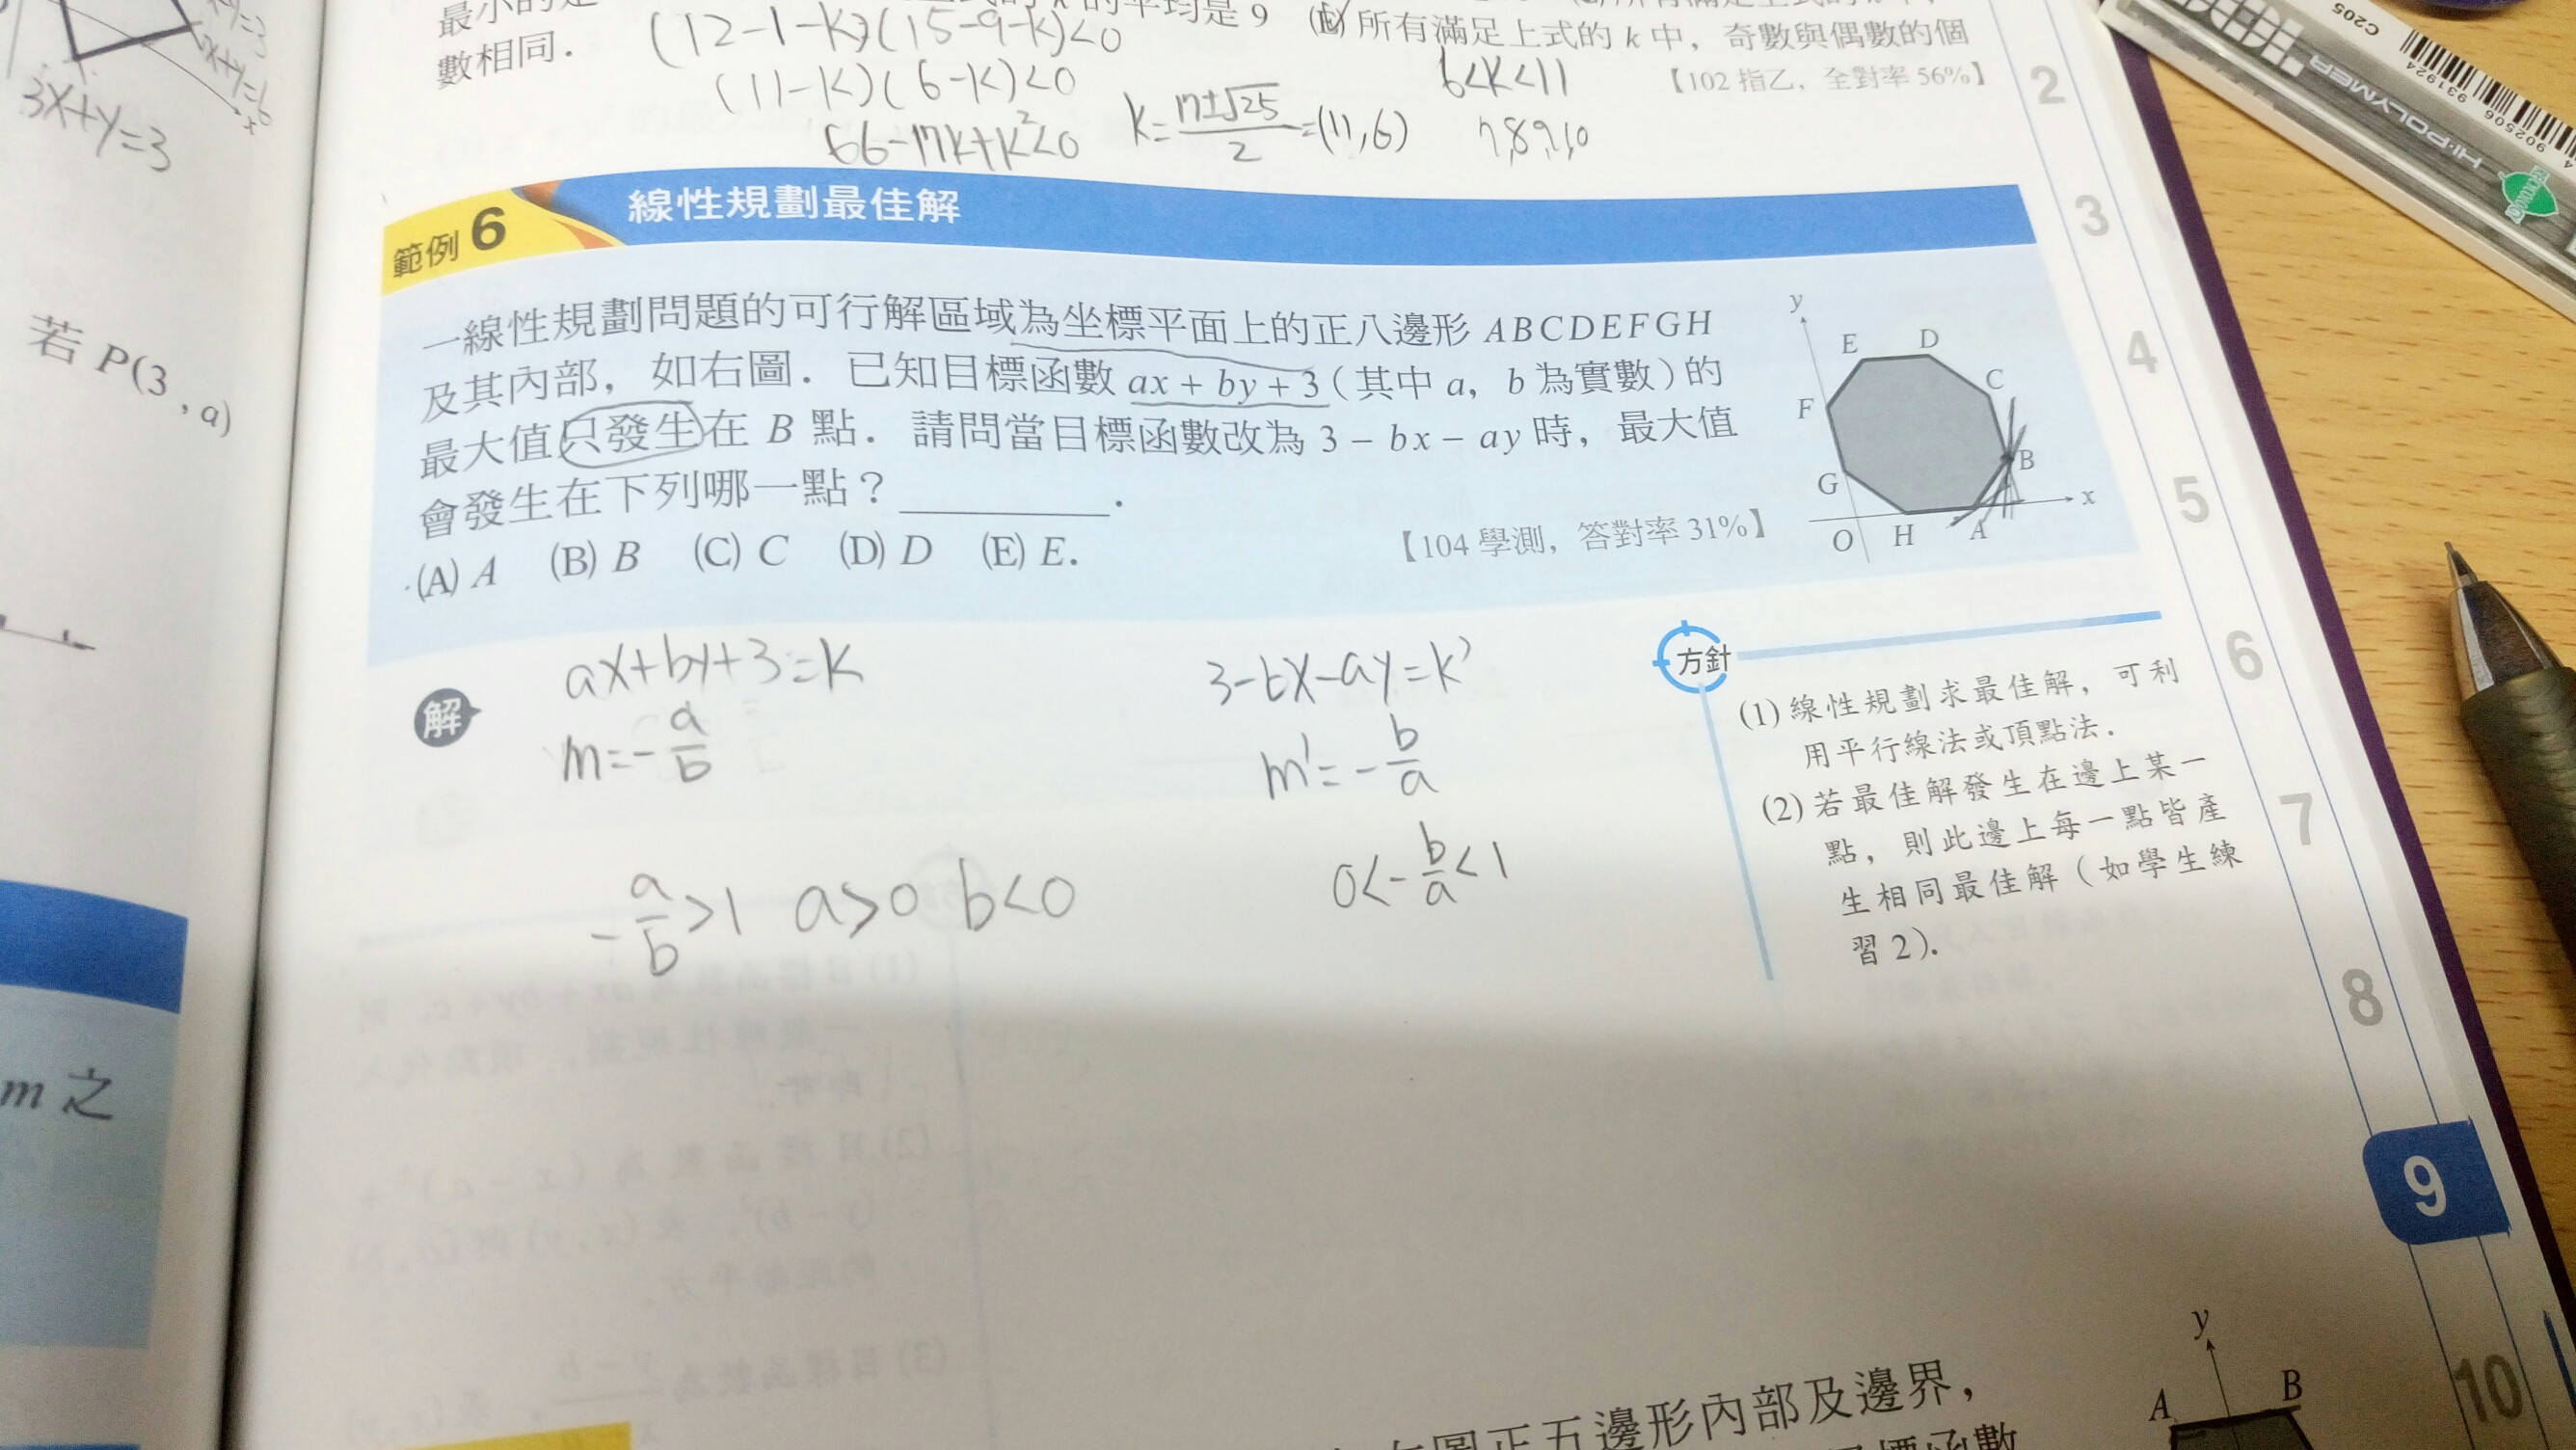 最小的是
的 k 的平均是 9 (E) 所有滿足上式的 k 中，奇數與偶數的個
數相同．
【102 指乙，全對率 56%】
(12-1-k)(15-9-k)<0
(11-k)(6-k)<0
66-17k+k²<0
k=17±√25/2=(11,6)
6<k<11
7,8,9,10
x+y=6
3x+y=3
若 P(3 , a)
m 之
範例 6 線性規劃最佳解
一線性規劃問題的可行解區域為坐標平面上的正八邊形 ABCDEFGH
及其內部，如右圖．已知目標函數 ax + by + 3（其中 a，b 為實數）的
最大值只發生在 B 點．請問當目標函數改為 3 − bx − ay 時，最大值
會發生在下列哪一點？________．
【104 學測，答對率 31%】
(A) A (B) B (C) C (D) D (E) E．
y
E D
C
F
B
G
x
O H A
解
ax+by+3=k
m=-a/b
-a/b>1 a>0 b<0
3-bx-ay=k'
m'=-b/a
0<-b/a<1
方針
(1) 線性規劃求最佳解，可利
用平行線法或頂點法．
(2) 若最佳解發生在邊上某一
點，則此邊上每一點皆產
生相同最佳解（如學生練
習 2）．
圖正五邊形內部及邊界，
標函數
y
A B
2
3
4
5
6
7
8
9
10
HI-POLYMER
C205